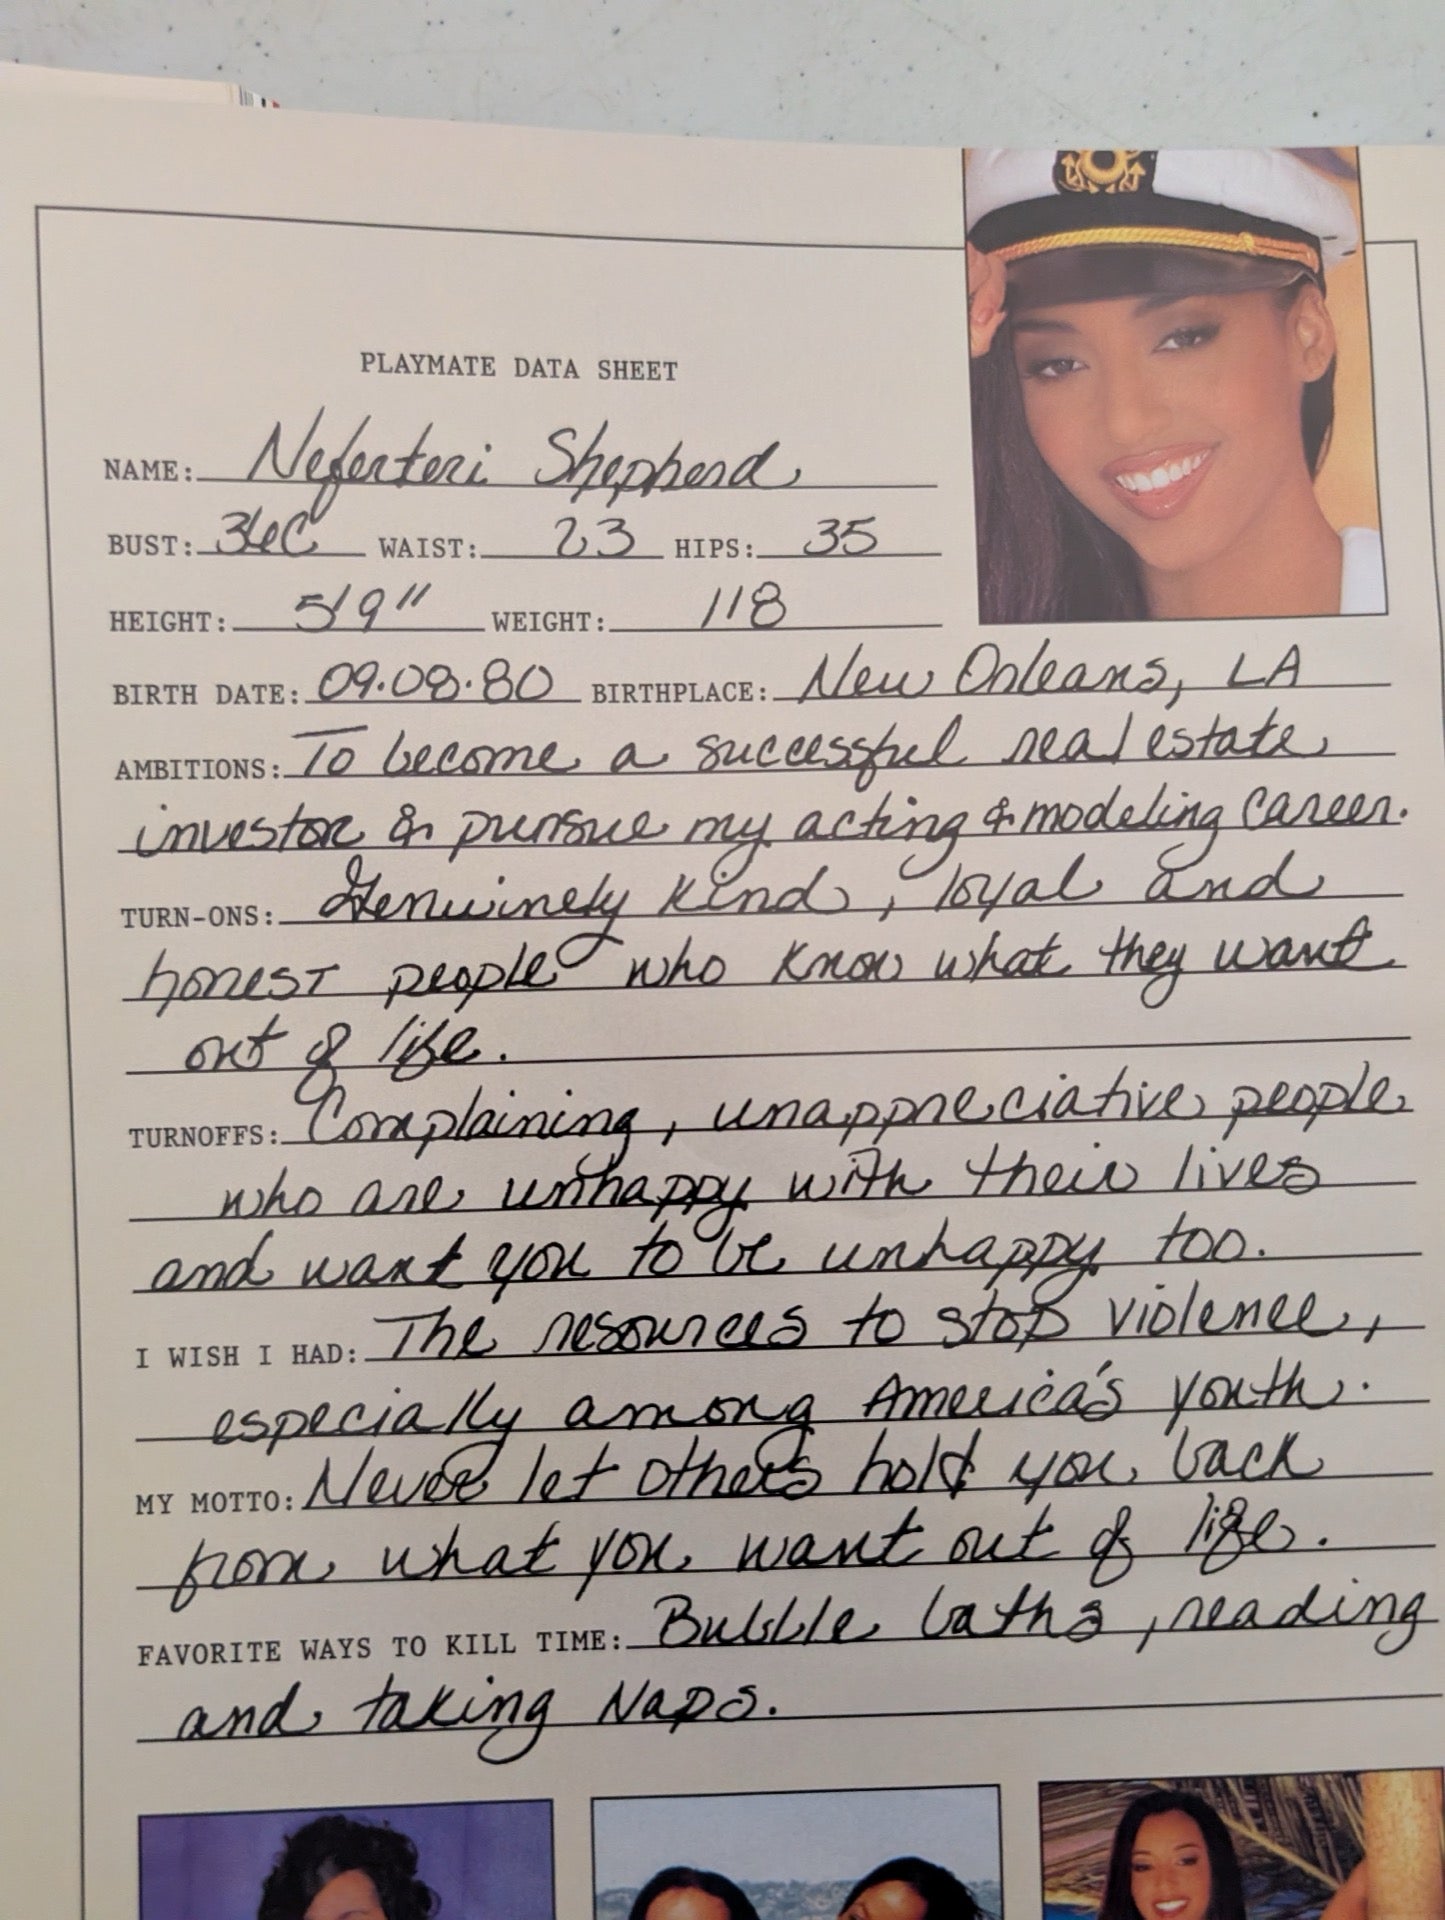 PLAYMATE DATA SHEET
NAME: Neferteri Shepherd
BUST: 36C WAIST: 23 HIPS: 35
HEIGHT: 5'9" WEIGHT: 118
BIRTH DATE: 09.08.80 BIRTHPLACE: New Orleans, LA
AMBITIONS: To become a successful real estate
investor & pursue my acting & modeling career.
TURN-ONS: Genuinely kind, loyal and
honest people who know what they want
out of life.
TURNOFFS: Complaining, unappreciative people
who are unhappy with their lives
and want you to be unhappy too.
I WISH I HAD: The resources to stop violence,
especially among America's youth.
MY MOTTO: Never let others hold you back
from what you want out of life.
FAVORITE WAYS TO KILL TIME: Bubble baths, reading
and taking naps.